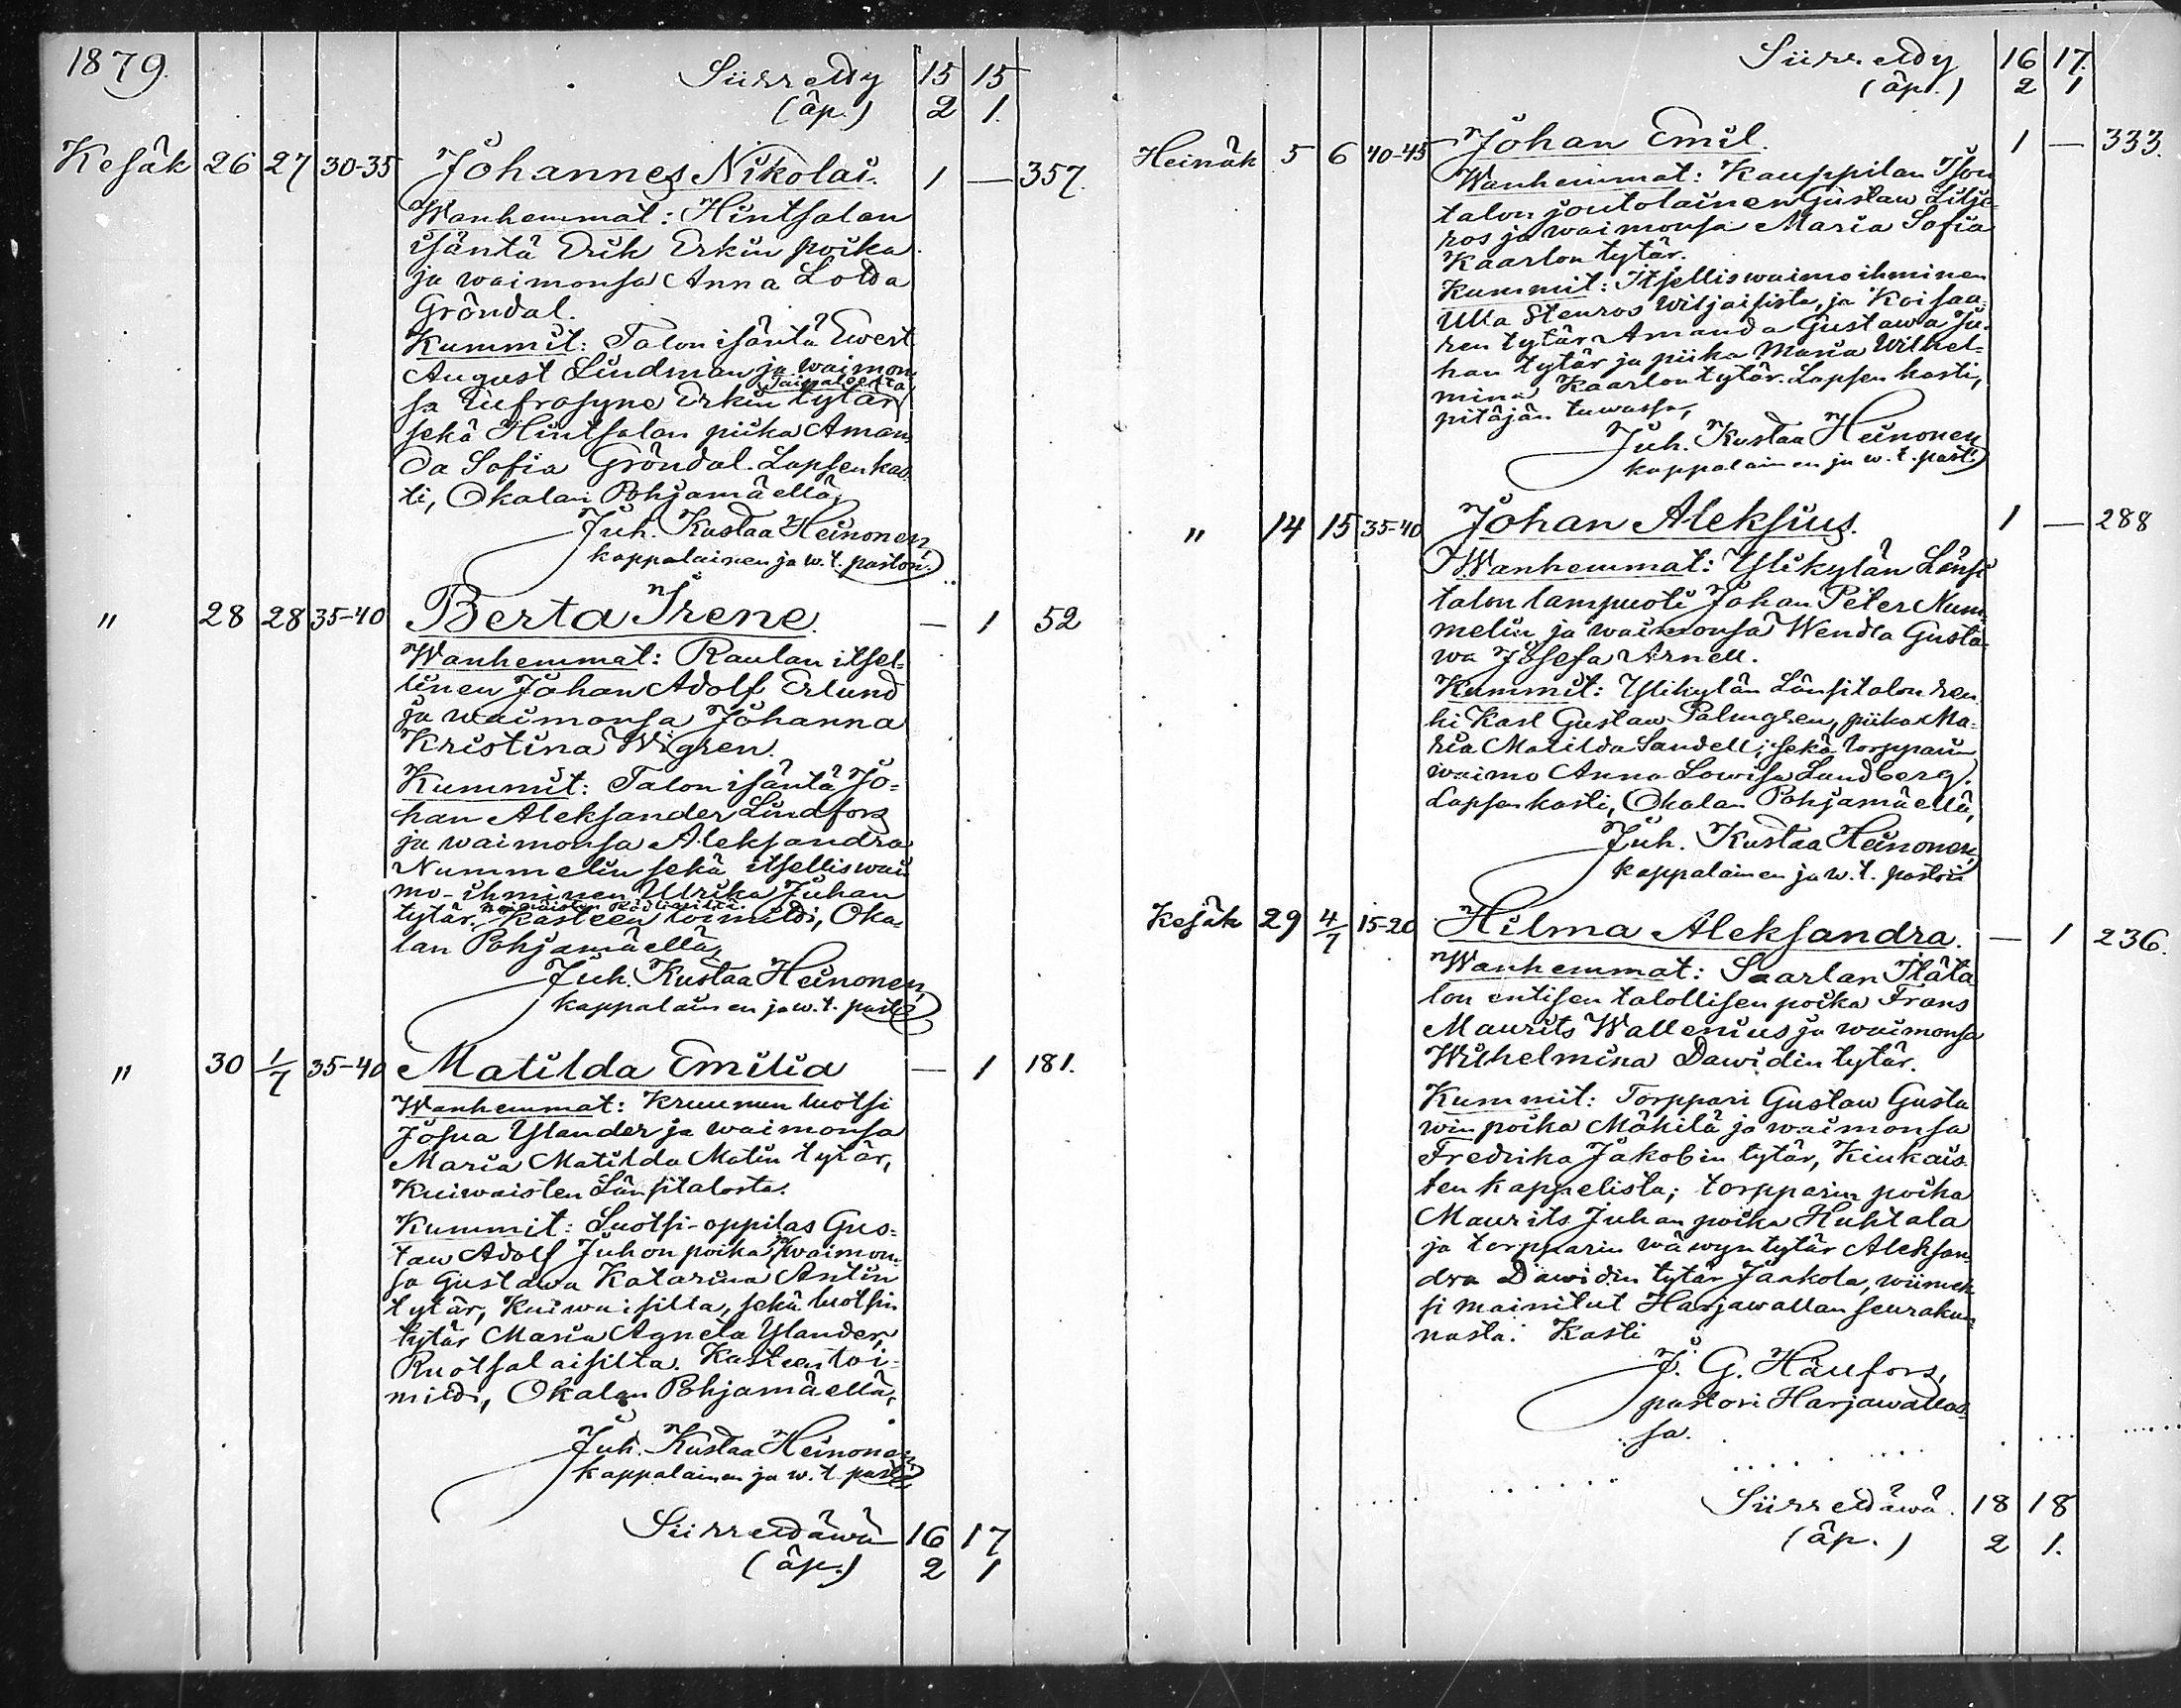 1879.
Siirretty 15 15
(äp.) 2 1.
Kesäk 26 27 30-35 Johannes Nikolai. 1 — 357.
Wanhemmat: Hintsalan
isäntä Erik Erkin poika
ja waimonsa Anna Lotta
Gröndal.
Kummit: Talon isäntä Ewert
August Lindman ja waimon-
Taipaleelta
sa Eufrosyne Erkin tytär
sekä Hintsalan piika Aman-
da Sofia Gröndal. Lapsen kas-
ti, Okalan Pohjamäellä,
Juh. Kustaa Heinonen,
kappalainen ja w. t. pastori.
" 28 28 35-40 Berta Irene. — 1 52
Wanhemmat: Raulan itsel-
linen Johan Adolf Erlund
ja waimonsa Johanna
Kristina Wigren.
Kummit: Talon isäntä Jo-
han Aleksander Lindfors
ja waimonsa Aleksandra
Nummelin sekä itsellis wai-
mo-ihminen Ulrika Juhan
tytär. Kasteen toimitti, Oka-
lan Pohjamäellä,
Juh. Kustaa Heinonen,
kappalainen ja w. t. past.
" 30 1/7 35-40 Matilda Emilia — 1 181.
Wanhemmat: Kruunun luotsi
Josua Ylander ja waimonsa
Maria Matilda Matin tytär,
Kuiwaisten Länsitalosta.
Kummit: Luotsi-oppilas Gus-
taw Adolf Juhon poika ja waimon-
sa Gustawa Katarina Antin
tytär, Kuiwaisilta, sekä luotsin
tytär Maria Agneta Ylander,
Ruotsalaisilta. Kasteen toi-
mitti, Okalan Pohjamäellä,
Juh. Kustaa Heinonen,
kappalainen ja w. t. past.
Siirrettäwä 16 17
(äp.) 2 1
Siirretty 16 17.
(äp.) 2 1
Heinäk 5 6 40-45 Johan Emil. 1 — 333.
Wanhemmat: Kauppilan Ison
talon joutolainen Gustaw Lilje-
ros ja waimonsa Maria Sofia
Kaarlon tytär.
Kummit: Itsellis waimoihminen
Ulla Stenros Wiljaisista, ja Koisaa-
ren tytär Amanda Gustawa Ju-
han tytär ja piika Maria Wilhel-
mina Kaarlon tytär. Lapsen kasti,
pitäjän tuwassa,
Juh. Kustaa Heinonen
kappalainen ja w. t. past.
" 14 15 35-40 Johan Aleksius. 1 — 288
Wanhemmat: Ylikylän Länsi
talon lampuoti Johan Peter Num-
melin ja waimonsa Wendla Gusta-
wa Josefa Arnell.
Kummit: Ylikylän Länsitalon ren-
ki Karl Gustaw Palmgren, piika Ma-
ria Matilda Sandell; sekä torpparin
waimo Anna Lowisa Lundberg.
Lapsen kasti, Okalan Pohjamäellä,
Juh. Kustaa Heinonen,
kappalainen ja w. t. pastori
Kesäk 29 4/7 15-20 Hilma Aleksandra. — 1 236.
Wanhemmat: Saarlan Itäta
lon entisen talollisen poika Frans
Maurits Wallenius ja waimonsa
Wilhelmina Dawidin tytär.
Kummit: Torppari Gustaw Gusta
win poika Mäkilä ja waimonsa
Fredrika Jakobin tytär, Kiukais-
ten kappelista; torpparin poika
Maurits Juhan poika Huhtala
ja torpparin wäwyn tytär Aleksan-
dra Dawidin tytär Jaakola, wiimek-
si mainitut Harjawallan seurakun-
nasta. Kasti
J. G. Häufors,
pastori Harjawallas-
sa.
Siirrettäwä. 18 18
(äp.) 2 1.